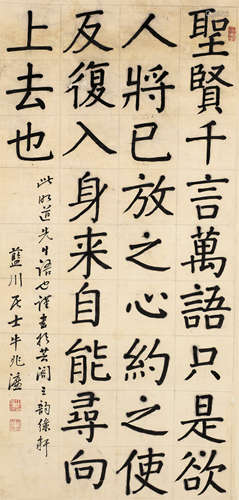 聖賢千言萬語只是欲
人將已放之心約之使
反復入身来自能尋向
上去也
此明道先生語也謹書於芸閣之韵軒
藍川居士牛兆濂